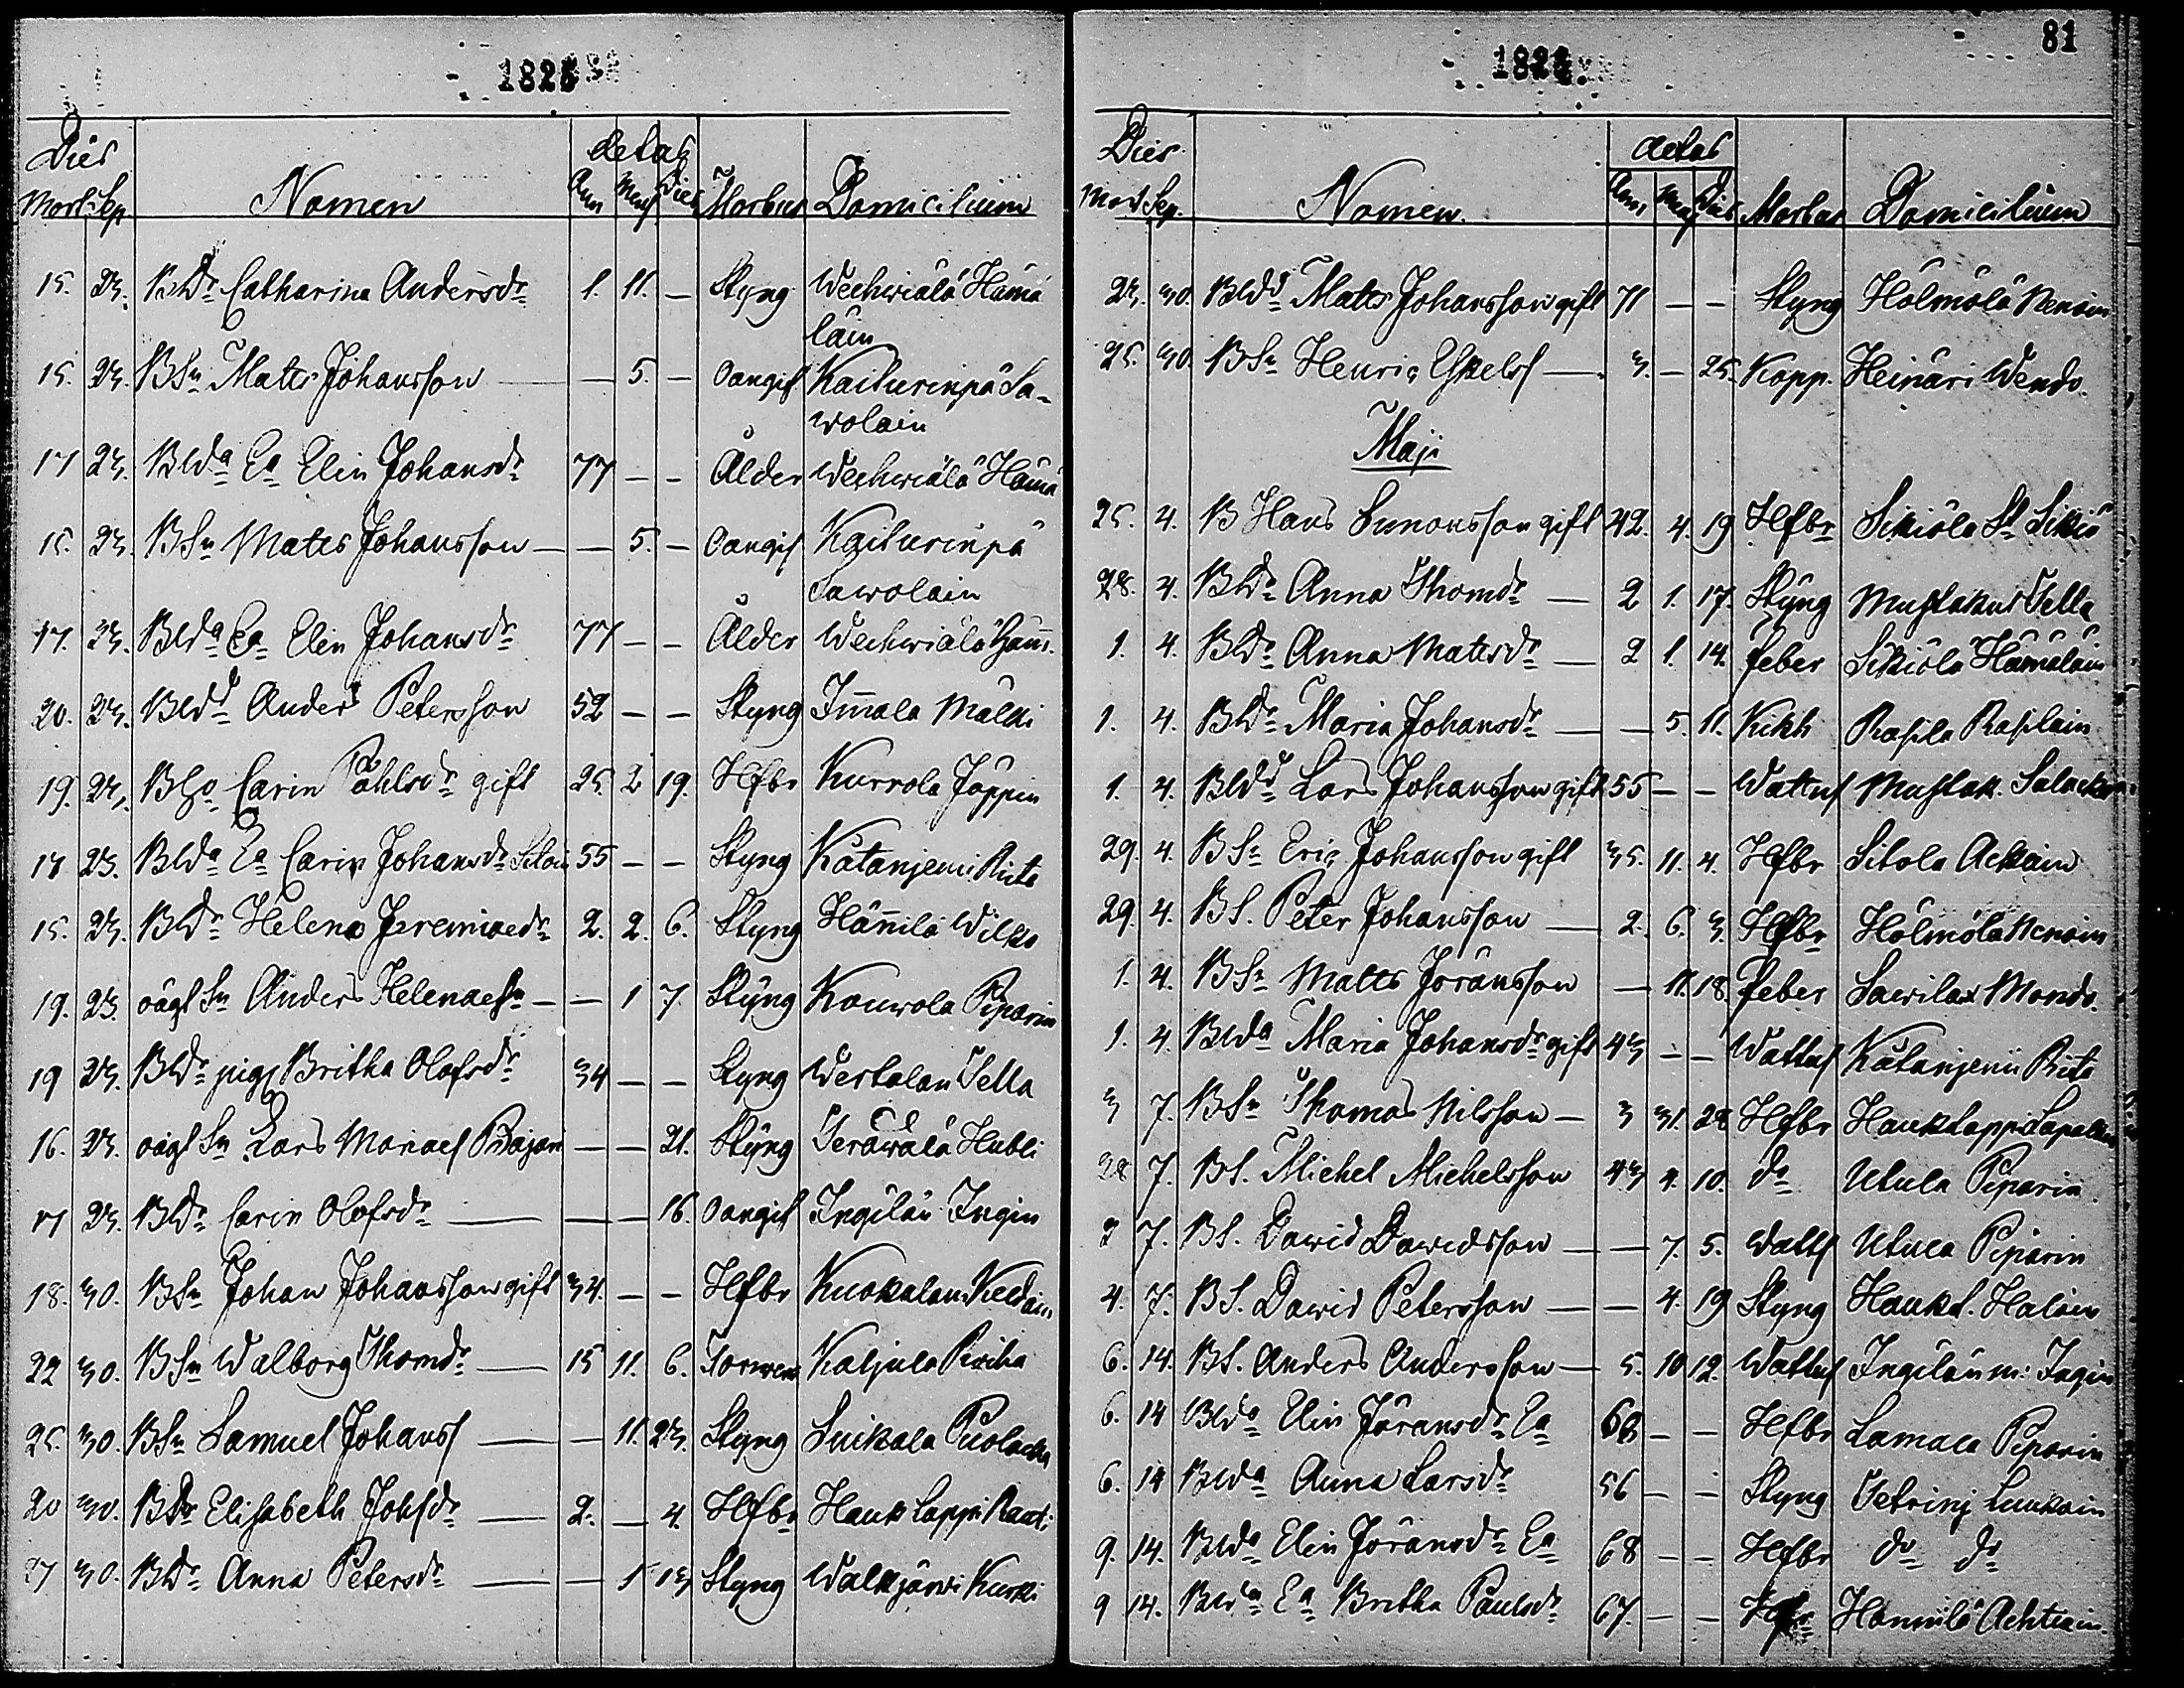 1825
Dies Nomen Aetas Morbus Domicilium
Mort. Sep. Ann Mens Dies
15. 23. BDr Catharina Andersdr 1. 11. — Styng Wechwiälä Hämä
läin
15. 23. BSn Matts Johansson — 5. — Oangif Kaiturinpä Sa-
wolain
17 23. Blda Ea Elin Johansdr 77 — — Ålder Wechwiälä Hämä
15. 23. BSn Matts Johansson — — 5. — Oangif Kaiturinpä
Sawolain
17. 23. Blda Ea Elen Johansdr 77 — — Ålder Wechwiälä Häm.
20. 23. Bldd Anders Petersson 52 — — Styng Immala Mälki
19. 23. BHo Carin Påhlsdr gift 25. 2 19. Hfbr Kurrola Jäppin
17 23. Blda Ea Carin Johansdr 55 — — Styng Kätänjemi Rita
15. 23. BDr Helena Jeremiaedr 2. 2. 6. Styng Hännilä Wilko
19. 23. oägt Sn Anders Helenaesn — — 1 7. Styng Kouwola Piparin
19 23. BDr pig Britha Olofsdr 34 — — Styng Westalan Tella
16. 23. oägt Sn Lars Mariaes Pajari — — 21. Styng Teräwälä Hubli
17 23. BDr Carin Olofsdr — — — 16. Oangif Ingilän Ingin
18. 30. BSn Johan Johansson gift 34. — — Hfbr Kuokalan
22 30. BSn Walborg Thomdr — 15 11. 6. Kaljula
25. 30. BSn Samuel Johanss — — 11. 23. Styng Suikala Puolacka
20 30. BDr Elisabeth Johsdr — 2. — 4. Hfbr Hauk Lappi Rauti
27 30. BDr Anna Petersdr — — 5 13 Styng Walkjärwi Kurki
81
182
Dies Nomen. Aetas Morbus Domicilium
Mort. Sep. Ann Mens Dies
23. 30. Bldd Matts Johansson gift 71 — — Styng Hölmölä Nenoin
25. 30. BSn Henric Eskelss — 3. — 25. Kopp. Heinäri Wend.
Maji
25. 4. B Hans Simonsson gift 42. 4. 19 Hfbr Sikiölä St Sikiö
28. 4. BDr Anna Thomdr — 2 1. 17. Styng Mustakus Tella
1. 4. BDr Anna Mattsdr — 2 1. 14. feber Sikiölä Hämäläin
1. 4. BDr Maria Johansdr — — 5. 11. Kikh Rasila Rasilain
1. 4. Bldd Lars Johansson gift 55 — — Wattus Mustak. Salacka
29. 4. BSn Eric Johansson gift 35. 11. 4. Hfbr Sitola Ackain
29. 4. BS. Peter Johansson — 2. 6. 3. Hfbr Hölmölä Nenoin
1. 4. BSn Matts Jöransson — 11. 18. feber Sawilax Mond.
1. 4. Blda Maria Johansdr gift 43 — — Wattus Kätänjemi Rita
3 7. BSn Thomas Nilsson — 3 28 Hfbr Hauklappi
28 7. BS. Michel Michelsson 43 4. 10. do Utula Piparin.
3 7. BS. Dawid Dawidsson — — 7. 5. Watts Utula Piparin
4. 7. BS. Dawid Petersson — — 4. 19 Styng Haukl. Haloin
6. 14. BS. Anders Andersson — 5. 10 12. Wattus Ingilän m: Ingin
6. 14 Blda Elin Jöransdr Ea 68 — — Hfbr Lamala Piparin
6. 14 Blda Anna Larsdr 56 — — Styng Tetrinj Luukoin
9. 14. Blda Elin Jöransdr Ea 68 — — Hfbr do do
9 14. Blda Ea Britha Paulsdr 67. — — Hännilä Achtiain.